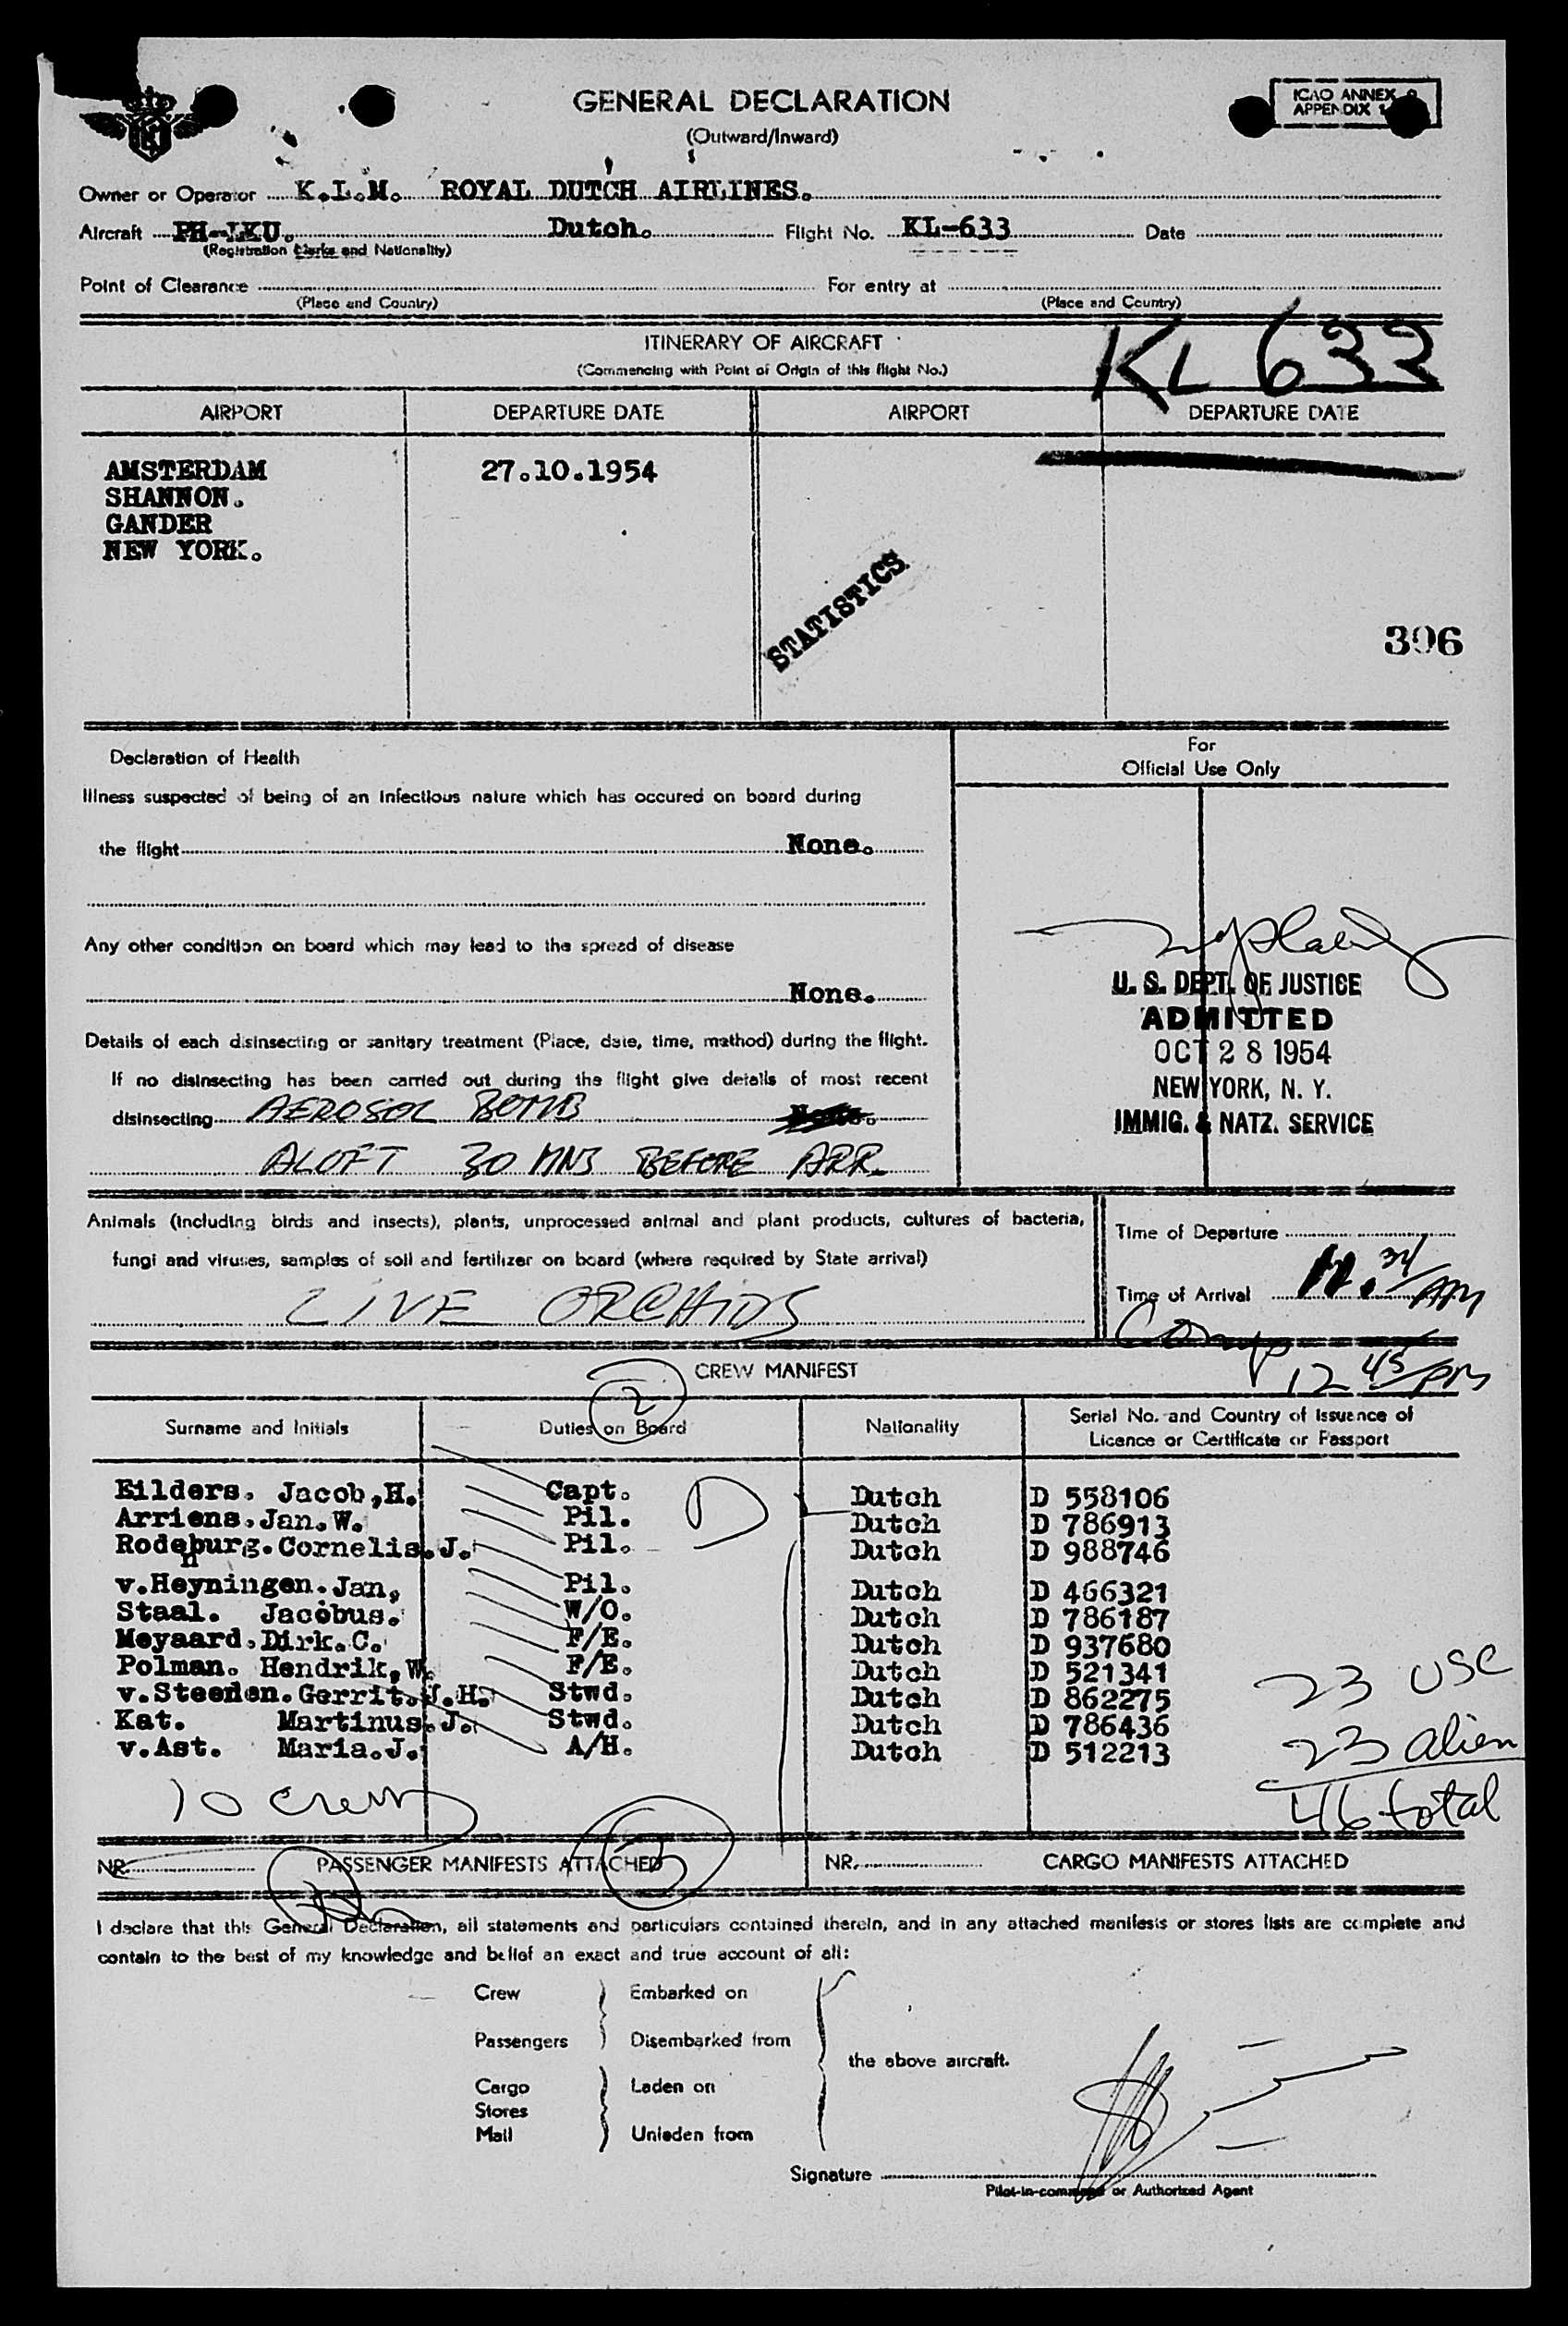 GENERAL DECLARATION
(Outward/Inward)
ICAO ANNEX 9
APPENDIX 1
Owner or Operator K.L.M. ROYAL DUTCH AIRLINES.
Aircraft PH-LKU. Dutch. Flight No. KL-633 Date
(Registration Marks and Nationality)
Point of Clearance For entry at
(Place and Country) (Place and Country)
KL 633
ITINERARY OF AIRCRAFT
(Commencing with Point of Origin of this flight No.)
AIRPORT DEPARTURE DATE AIRPORT DEPARTURE DATE
AMSTERDAM 27.10.1954
SHANNON.
GANDER
NEW YORK.
STATISTICS
396
Declaration of Health
For
Official Use Only
Illness suspected of being of an infectious nature which has occured on board during
the flight None.
Any other condition on board which may lead to the spread of disease
None.
Details of each disinsecting or sanitary treatment (Place, date, time, method) during the flight.
If no disinsecting has been carried out during the flight give details of most recent
disinsecting AEROSOL BOMB
ALOFT 30 MNS BEFORE ARR.
U. S. DEPT. OF JUSTICE
ADMITTED
OCT 28 1954
NEW YORK, N. Y.
IMMIG. & NATZ. SERVICE
Animals (including birds and insects), plants, unprocessed animal and plant products, cultures of bacteria,
fungi and viruses, samples of soil and fertilizer on board (where required by State arrival)
LIVE ORCHIDS
Time of Departure
Time of Arrival 11.34/AM
Comp 12 45/PM
CREW MANIFEST
2
Surname and Initials Duties on Board Nationality Serial No. and Country of Issuance of
Licence or Certificate or Passport
Eilders. Jacob,H. Capt. Dutch D 558106
Arriens.Jan.W. Pil. Dutch D 786913
Rodenburg.Cornelis.J. Pil. Dutch D 988746
v.Heyningen.Jan, Pil. Dutch D 466321
Staal. Jacobus. W/O. Dutch D 786187
Meyaard.Dirk.C. F/E. Dutch D 937680
Polman. Hendrik,W. F/E. Dutch D 521341
v.Steeden.Gerrit.J.H. Stwd. Dutch D 862275
Kat. Martinus.J. Stwd. Dutch D 786436
v.Ast. Maria.J. A/H. Dutch D 512213
D
23 USC
23 alien
46 total
10 crew
NR. PASSENGER MANIFESTS ATTACHED NR. CARGO MANIFESTS ATTACHED
I declare that this General Declaration, all statements and particulars contained therein, and in any attached manifests or stores lists are complete and
contain to the best of my knowledge and belief an exact and true account of all:
Crew Embarked on
Passengers Disembarked from
the above aircraft.
Cargo Laden on
Stores
Mail Unladen from
Signature
Pilot-in-command or Authorized Agent